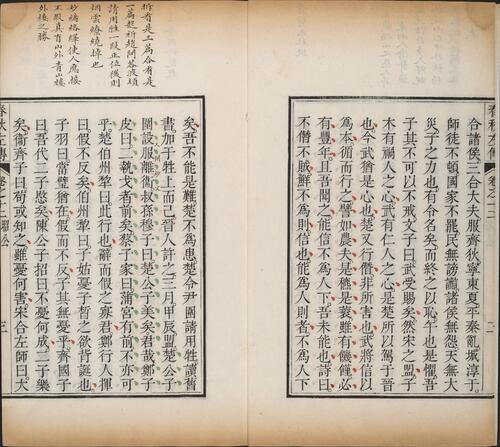 春秋左傳 卷之十二
二
合諸侯三合大夫服齊狄寧東夏平秦亂城淳于
師徒不頓國家不罷民無謗讟諸侯無怨天無大
災子之力也有令名矣而終之以恥午也是懼吾
子其不可以不戒文子曰武受賜矣然宋之盟子
木有禍人之心武有仁人之心是楚所以駕于晉
也今武猶是心也楚又行僭非所害也武將信以
為本循而行之譬如農夫是穮是蓘雖有饑饉必
有豐年且吾聞之能信不為人下吾未能也詩曰
不僭不賊鮮不為則信也能為人則者不為人下
是工為合肴是
一篇
請用牲一段正位後則
烟雲繚繞掉也
妙緒絡繹使人應接
不暇真有山外青山樓
外樓之勝
矣吾不能是難楚不為患楚令尹圍請用牲讀舊
書加于牲上而已晉人許之三月甲辰盟楚公子
圍設服離衛叔孫穆子曰楚公子美矣君哉鄭子
皮曰二執戈者前矣蔡子家曰蒲宮有前不亦可
乎楚伯州犂曰此行也辭而假之寡君鄭行人揮
曰假不反矣伯州犂曰子姑憂子晳之欲背誕也
子羽曰當璧猶在假而不反子其無憂乎齊國子
曰吾代二子愍矣陳公子招曰不憂何成二子樂
矣衛齊子曰苟或知之雖憂何害宋合左師曰大
春秋左傳 卷之十二 昭公
三